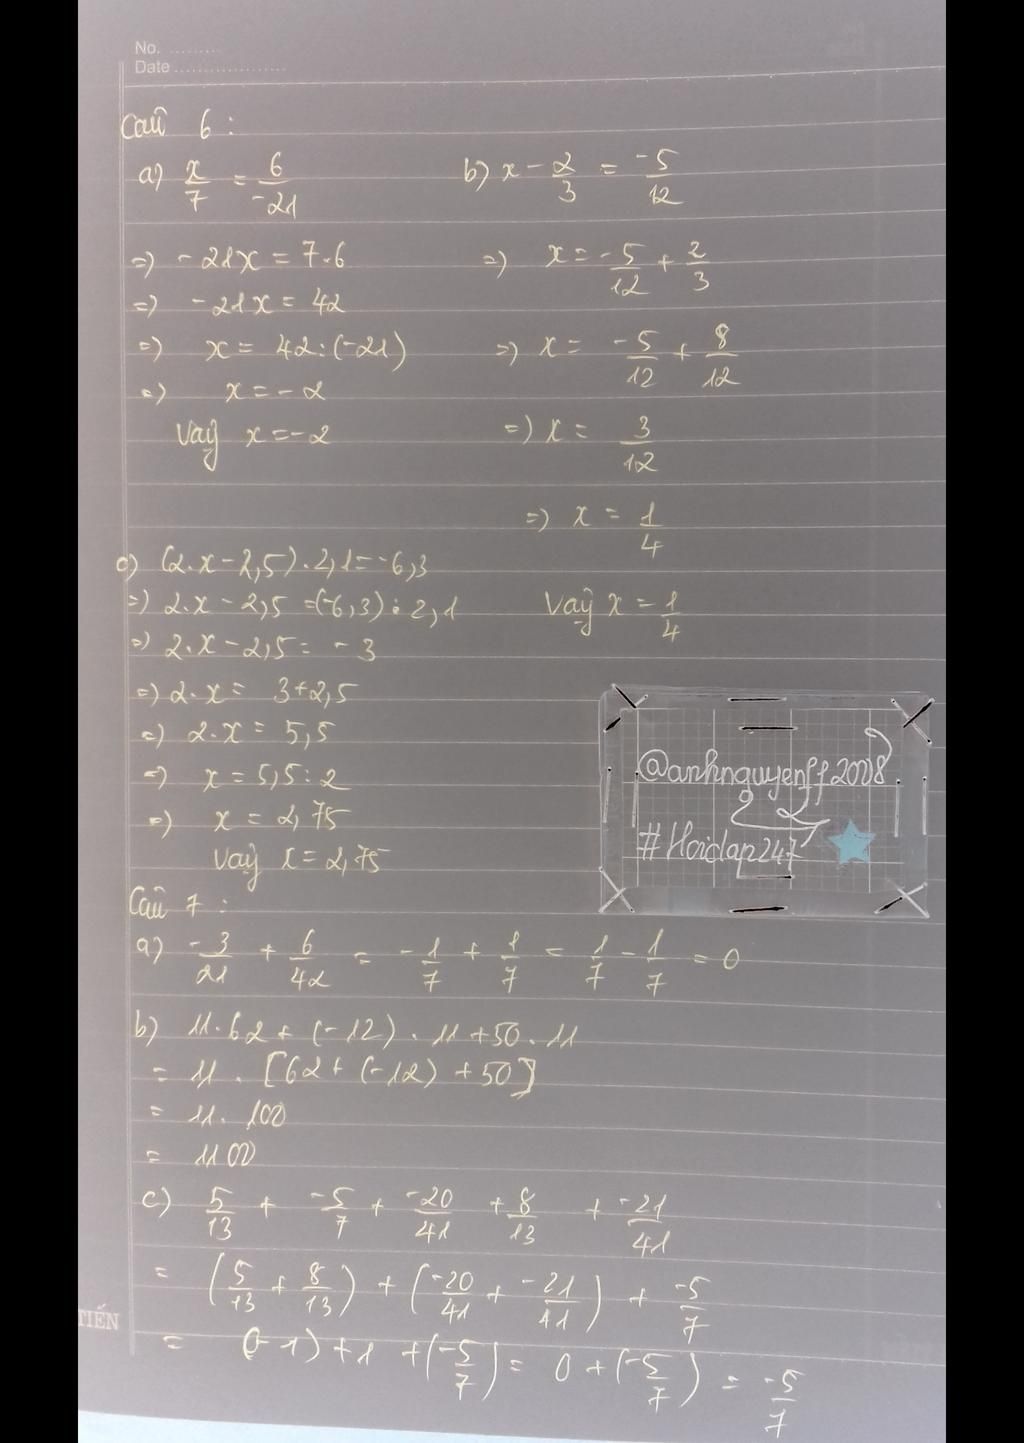 No. .........
Date ...................
Câu 6 :
a) x/7 = 6/-21
=) -21x = 7.6
=) -21x = 42
=) x = 42:(-21)
=) x = -2
Vậy x = -2
b) x - 2/3 = -5/12
=) x = -5/12 + 2/3
=) x = -5/12 + 8/12
=) x = 3/12
=) x = 1/4
Vậy x = 1/4
c) (2.x - 2,5).2,1 = -6,3
=) 2.x - 2,5 = (-6,3) : 2,1
=) 2.x - 2,5 = -3
=) 2.x = 3+2,5
=) 2.x = 5,5
=) x = 5,5:2
=) x = 2,75
Vậy x = 2,75
@anhnguyenff2008
#Hoidap247
Câu 7 :
a) -3/21 + 6/42 = -1/7 + 1/7 = 1/7 - 1/7 = 0
b) 11.62 + (-12).11 + 50.11
= 11.[62 + (-12) + 50]
= 11.100
= 1100
c) 5/13 + -5/7 + -20/41 + 8/13 + -21/41
= (5/13 + 8/13) + (-20/41 + -21/41) + -5/7
= (-1) + 1 + (-5/7) = 0 + (-5/7) = -5/7
TIẾN